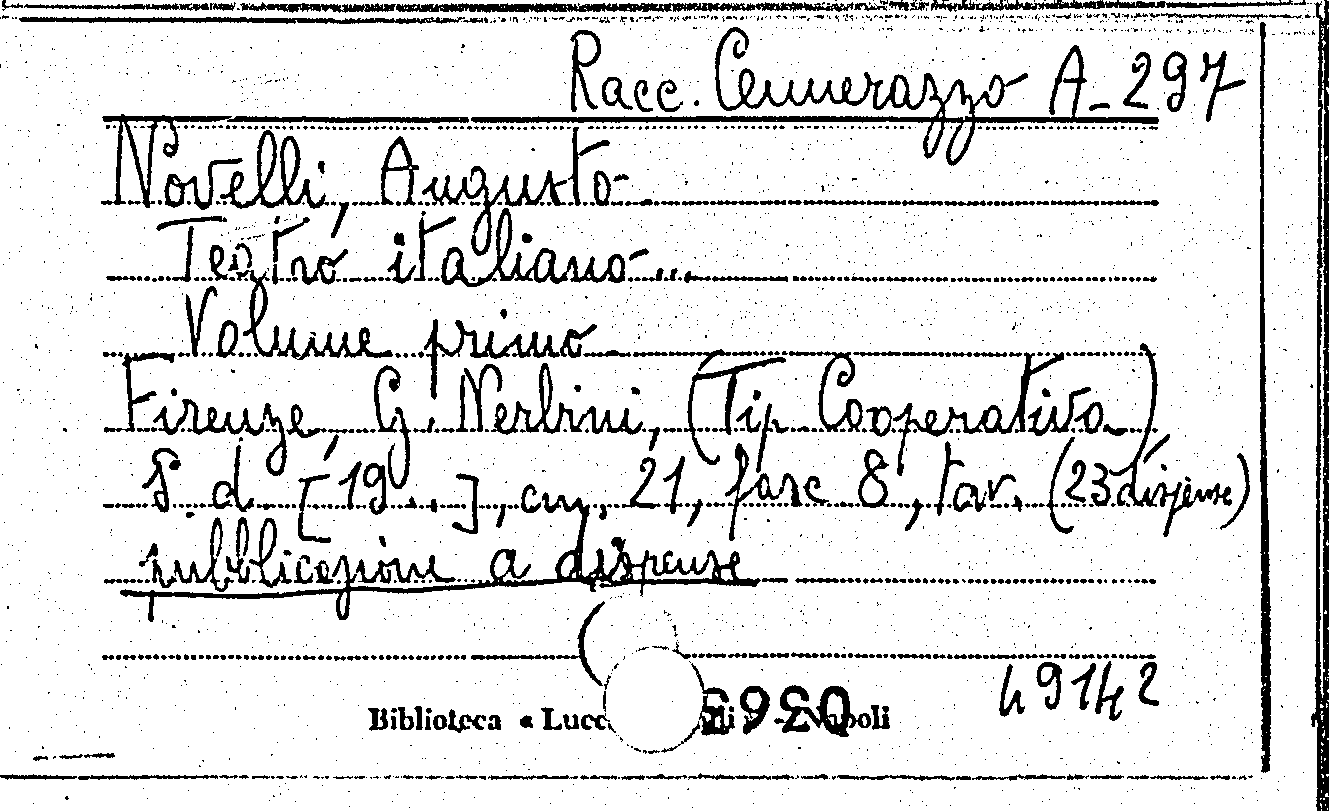 Racc. Cennerazzo A-297
Novelli, Augusto
Teatro italiano...
Volume primo
Firenze, G. Nerbini, (Tip. Cooperativa)
S. d. [19..], cm. 21, fasc 8, tav. (23 dispense)
pubblicazione a dispense
Biblioteca « Lucc
Napoli
49142